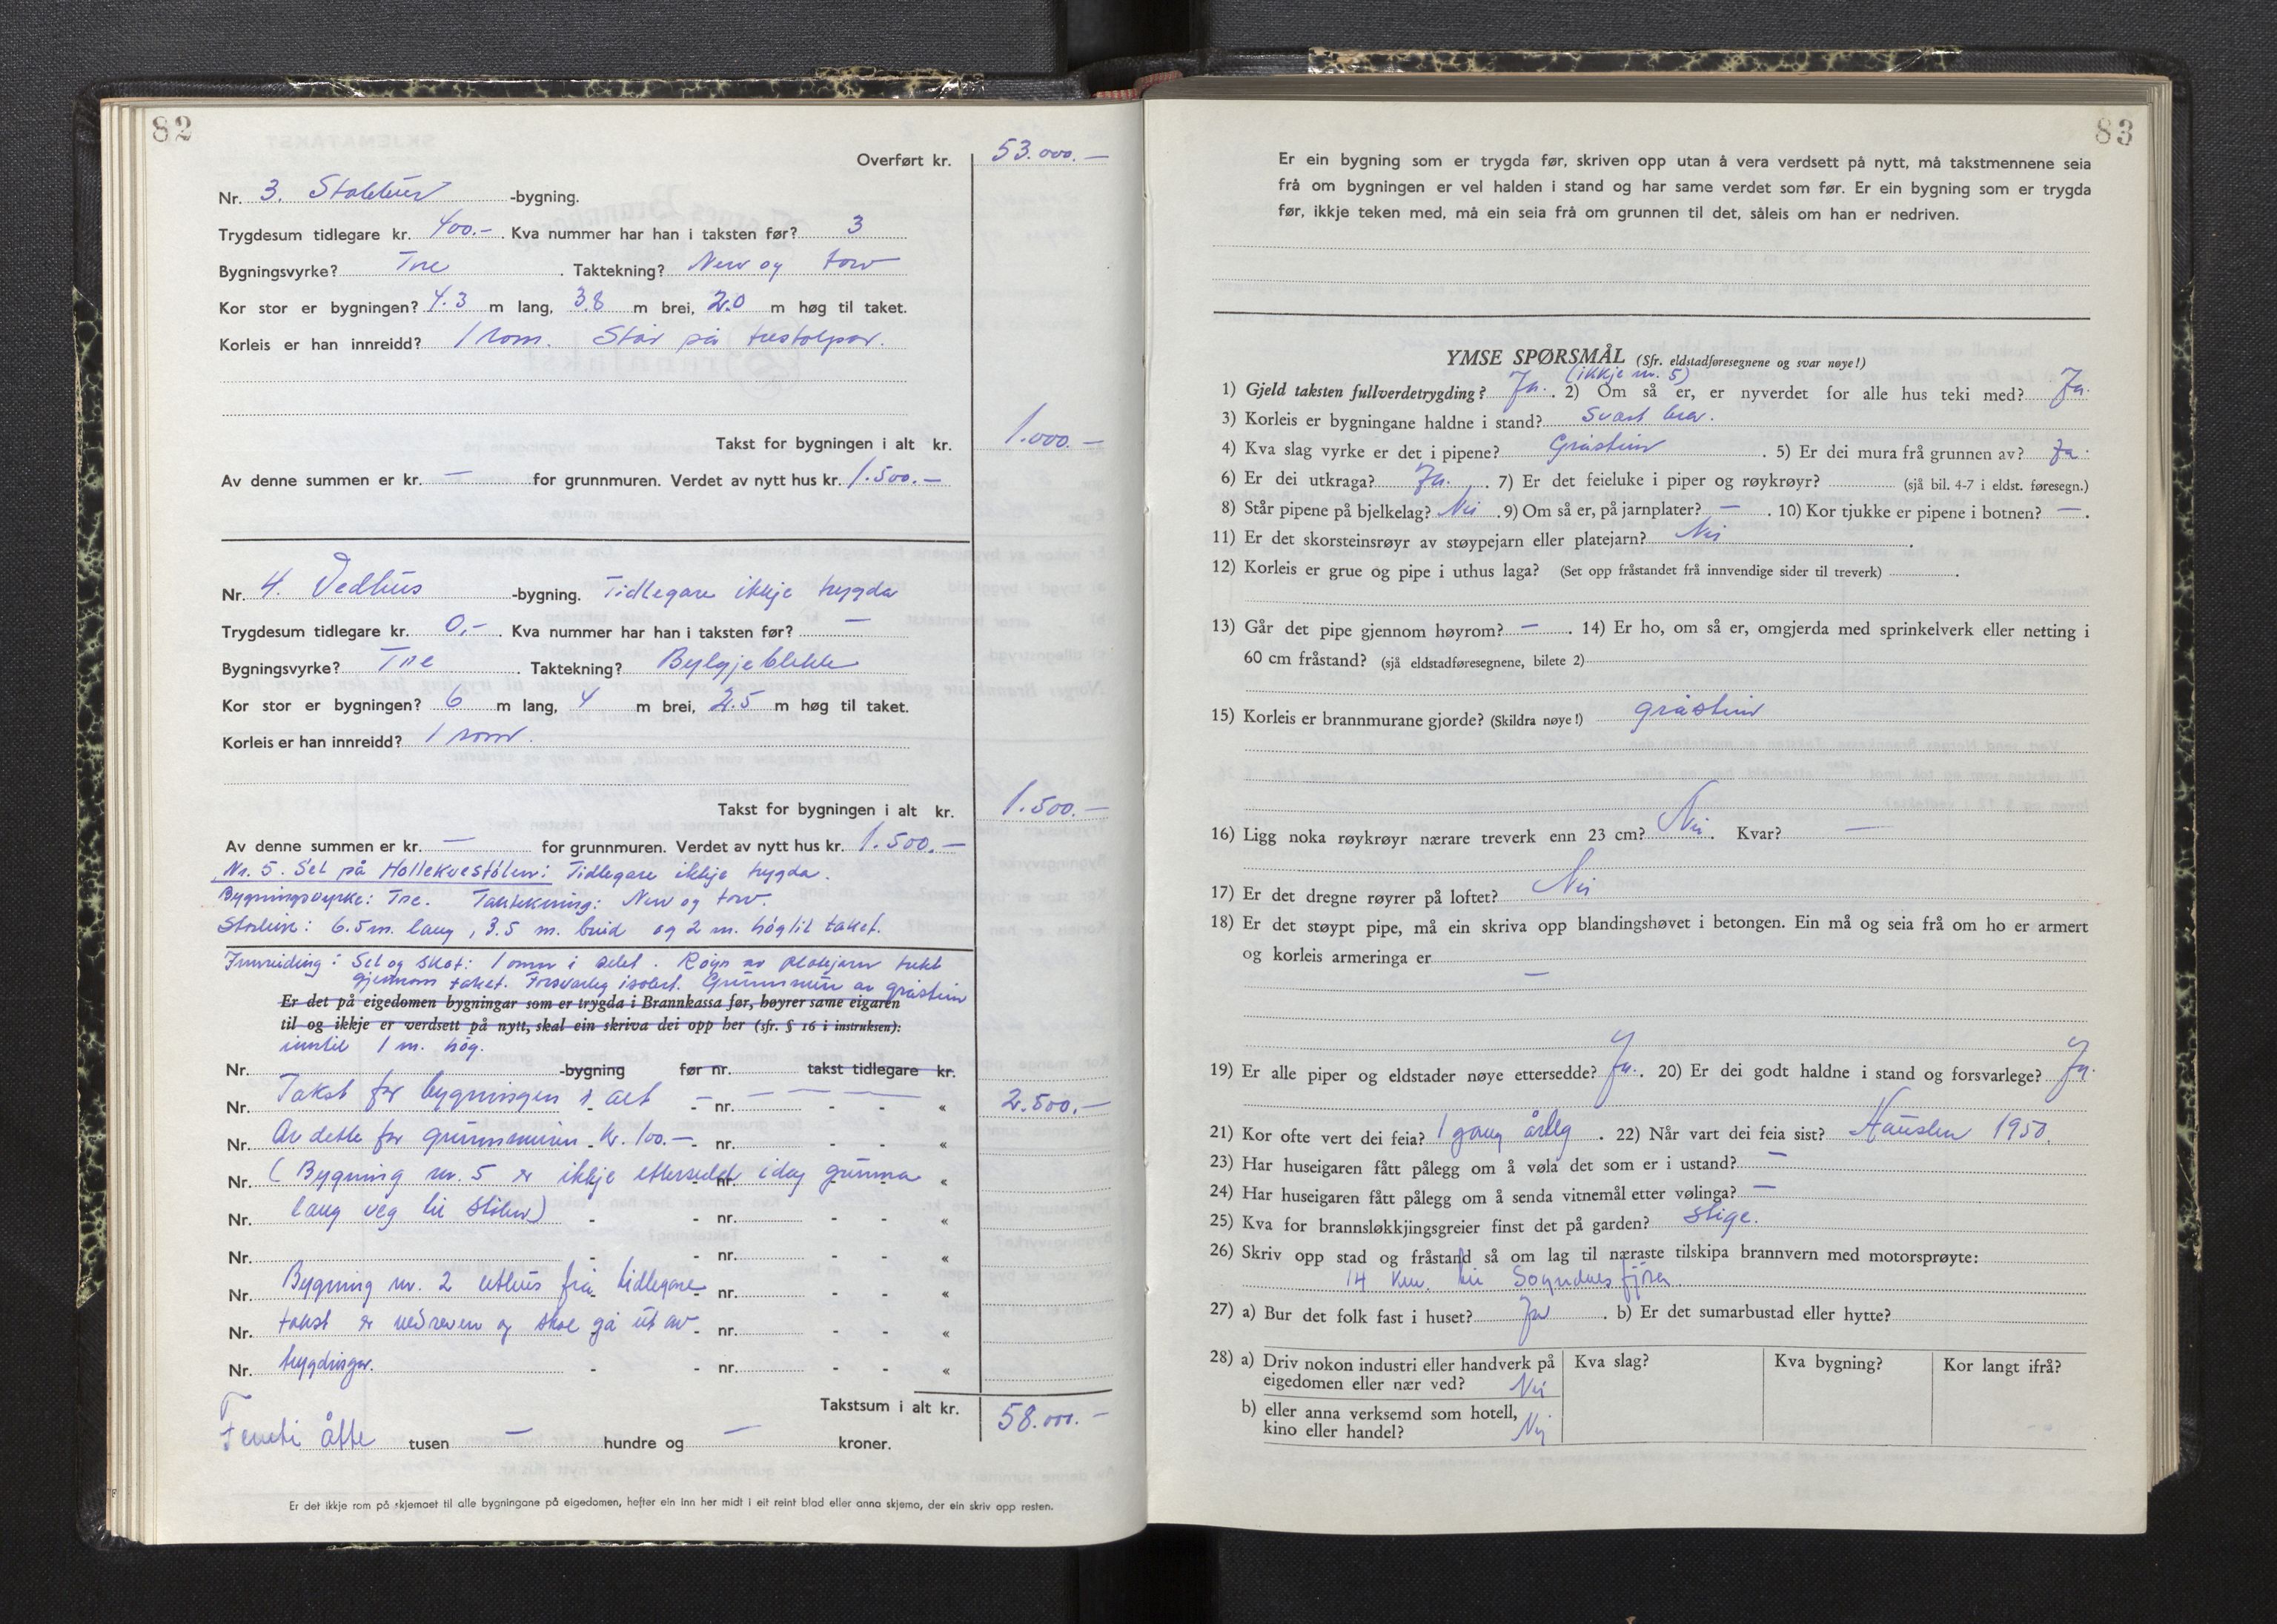 82
Overført kr. 53.000.—
Nr. 3. Stabbur -bygning.
Trygdesum tidlegare kr. 400.— . Kva nummer har han i taksten før? 3
Bygningsvyrke? Tre . Taktekning? Never og torv
Kor stor er bygningen? 4.3 m lang, 3.8 m brei, 2.0 m høg til taket.
Korleis er han innreidd? 1 rom. Står på trestolpar.
Takst for bygningen i alt kr. 1.000.—
Av denne summen er kr. — for grunnmuren. Verdet av nytt hus kr. 1.500.—
Nr. 4. Vedhus -bygning. Tidlegare ikkje trygda
Trygdesum tidlegare kr. 0,- . Kva nummer har han i taksten før? —
Bygningsvyrke? Tre . Taktekning? Bylgjeblekk
Kor stor er bygningen? 6 m lang, 4 m brei, 2.5 m høg til taket.
Korleis er han innreidd? 1 rom.
Takst for bygningen i alt kr. 1.500.—
Av denne summen er kr. — for grunnmuren. Verdet av nytt hus kr. 1.500.—
Nr. 5. Sel på Hollekvestølen: Tidlegare ikkje trygda.
Bygningsvyrke: Tre. Taktekning: Never og torv.
Storleik: 6.5 m. lang, 3.5 m. breid og 2 m. høg til taket.
Innreiding: Sel og skot: 1 omn i selet. Røyr av platejarn trekt
gjennom taket. Forsvarleg isolert. Grunnmur av gråstein
Er det på eigedomen bygningar som er trygda i Brannkassa før, høyrer same eigaren
til og ikkje er verdsett på nytt, skal ein skriva dei opp her (sfr. § 16 i instruksen):
inntil 1 m. høg.
Nr. -bygning før nr. takst tidlegare kr.
Nr. Takst for bygningen i alt - nr. - - « 2.500.—
Nr. Av dette for grunnmuren kr. 100.— - nr. - - «
Nr. (Bygning nr. 5 er ikkje ettersedd idag grunna - nr. - - «
Nr. lang veg til stølen) - - nr. - - «
Nr. - - nr. - - «
Nr. Bygning nr. 2 uthus frå tidlegare - nr. - - «
Nr. takst er nedreven og skal gå ut av - nr. - - «
Nr. trygdinga. - - nr. - - «
Takstsum i alt kr. 58.000.—
Femti åtte tusen — hundre og — kroner.
Er det ikkje rom på skjemaet til alle bygningane på eigedomen, hefter ein inn her midt i eit reint blad eller anna skjema, der ein skriv opp resten.
83
Er ein bygning som er trygda før, skriven opp utan å vera verdsett på nytt, må takstmennene seia
frå om bygningen er vel halden i stand og har same verdet som før. Er ein bygning som er trygda
før, ikkje teken med, må ein seia frå om grunnen til det, såleis om han er nedriven.
YMSE SPØRSMÅL (Sfr. eldstadføresegnene og svar nøye!)
(ikkje nr. 5)
1) Gjeld taksten fullverdetrygding? Ja. . 2) Om så er, er nyverdet for alle hus teki med? Ja.
3) Korleis er bygningane haldne i stand? Svært bra.
4) Kva slag vyrke er det i pipene? Gråstein . 5) Er dei mura frå grunnen av? Ja.
6) Er dei utkraga? Ja. . 7) Er det feieluke i piper og røykrøyr? (sjå bil. 4-7 i eldst. føresegn.)
8) Står pipene på bjelkelag? Nei . 9) Om så er, på jarnplater? — . 10) Kor tjukke er pipene i botnen? — .
11) Er det skorsteinsrøyr av støypejarn eller platejarn? Nei .
12) Korleis er grue og pipe i uthus laga? (Set opp fråstandet frå innvendige sider til treverk) .
13) Går det pipe gjennom høyrom? — . 14) Er ho, om så er, omgjerda med sprinkelverk eller netting i
60 cm fråstand? (sjå eldstadføresegnene, bilete 2)
15) Korleis er brannmurane gjorde? (Skildra nøye!) gråstein
16) Ligg noka røykrøyr nærare treverk enn 23 cm? Nei . Kvar? —
17) Er det dregne røyrer på loftet? Nei
18) Er det støypt pipe, må ein skriva opp blandingshøvet i betongen. Ein må og seia frå om ho er armert
og korleis armeringa er —
19) Er alle piper og eldstader nøye ettersedde? Ja. . 20) Er dei godt haldne i stand og forsvarlege? Ja.
21) Kor ofte vert dei feia? 1 gang årleg . 22) Når vart dei feia sist? Hausten 1950.
23) Har huseigaren fått pålegg om å vøla det som er i ustand? —
24) Har huseigaren fått pålegg om å senda vitnemål etter vølinga? —
25) Kva for brannsløkkjingsgreier finst det på garden? Stige.
26) Skriv opp stad og fråstand så om lag til næraste tilskipa brannvern med motorsprøyte:
14 km. til Sogndalsfjøra.
27) a) Bur det folk fast i huset? Ja . b) Er det sumarbustad eller hytte?
28) a) Driv nokon industri eller handverk på eigedomen eller nær ved? Nei
Kva slag? Kva bygning? Kor langt ifrå?
b) eller anna verksemd som hotell, kino eller handel? Nei